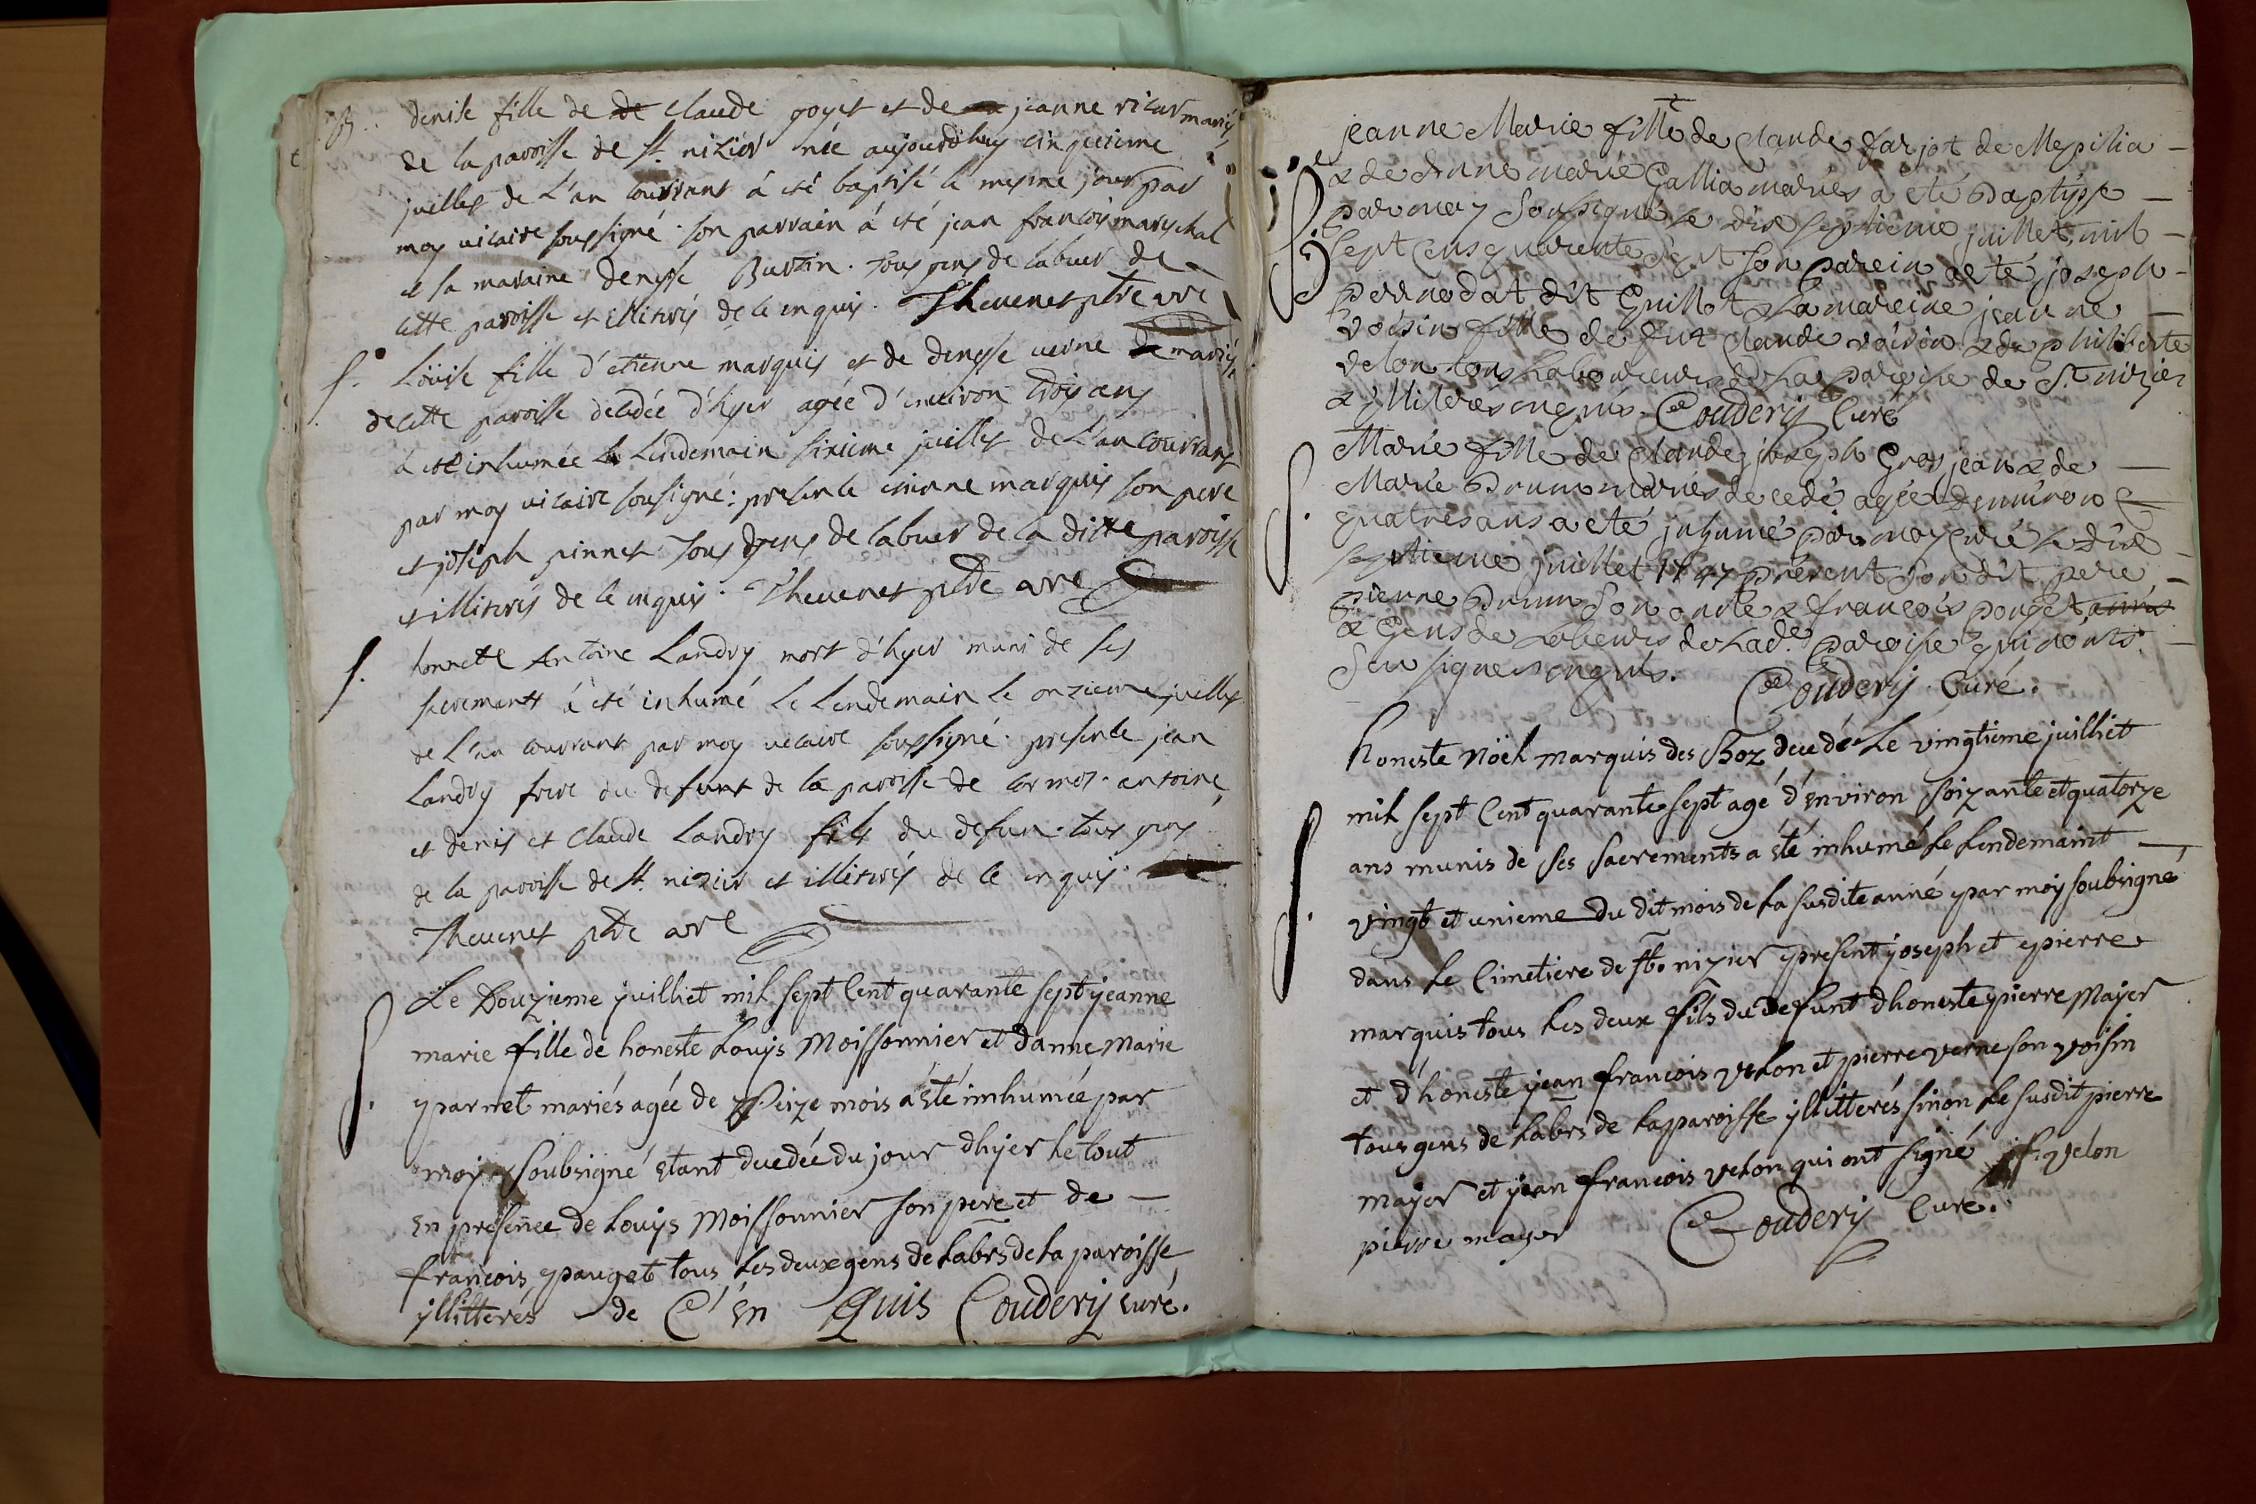 B. denise fille de de claude goyet et de jeanne ricur mariés
de la paroisse de st. nizier née aujourdhuy cinqieime
juillet de l'an courrant á eté baptisé le mesme jour par
moy vicaire soussigné. son parrain á eté jean francois mareschal
et sa maraine denysse Burtin. tous gens de labeur de
cette paroisse et illiterés de ce enquis. Thevenet ptre vre
S. Loüise fille d'etienne marquis et de denysse verne de mariés
de cette paroisse decedée d'hyer agée d'environ trois ans
á eté inhumée le lendemain sixieme juillet de l'an courrant
par moy vicaire sousigné: presente etienne marquis son pere
et joseph pinnet tous gens de labeur de la ditte paroisse
et illiterés de ce enquis. Thevenet ptre vre
S. honnette Antoine Landry mort d'hyer muni de ses
sacremants á eté inhumé le lendemain le onzieme juillet
de l'an courrant par moy vicaire soussigné. presente jean
Landry frere du defunt de la paroisse de cormos. antoine,
et denis et claude Landry fils du defun. tous gens
de la paroisse de st. nizier et illiterés de ce enquis.
Thevenet ptre vre
S. Le Douzieme juilliet mil sept Cent quarante sept jeanne
marie fille de honeste Louys Moissonnier et danne marie
parnet mariés agée de seize mois á êté inhumée par
moy soubsigné êtant decedée du jour dhyer le tout
En presence de Louys Moissonnier son pere et de —
francois pauget tous les deux gens de labrs de la paroisse
yllitterés de Ce En Quis Couderij curé.
jeanne Marie fille de Claude farjot de Mepilia —
& de anne marie Gallia mariés a eté Baptisse —
par moy Sousigné le dix septieme juillet mil —
sept cens quarente sept son parein a eté joseph —
pernodat dit Guillot & la mareine jeanne —
voisin fille de fut Claude voisin & de philiberte
velon tous laboureurs de la paroisse de St. nizier
& yllitérés enquis. Couderij Curé
S. Marie fille de Claude joseph Gros jean & de —
Marie Brun mariés decedé agée denviron
quatres ans a eté inhumé par moy curé le dix —
septieme juillet 1747 present son dit pere —
pierre Brun son oncle & françois pouget
& Gens de labeurs de lad. paroisse qui n'ont —
sçu signer enquis. Couderij Curé.
S. honeste Nöel marquis des Boz decedé Le vingtieme juilliet
mil sept Cent quarante sept agé d'Environ soizante et quatorze
ans munis de ses sacrements a êté inhumé Le Lendemaint —
vingt et unieme du dit mois de La susdite anné par moy soubsigné
dans Le Cimetiere de st. nizier present joseph et pierre
marquis tous Les deux fils du defunt dhoneste pierre Mayer
et d'honeste jean francois velon et pierre verne son voisin
tous gens de labrs de la paroisse yllitterés sinon Le susdit pierre
mayer et jean francois velon qui ont signé jf. velon
pierre mayer Couderij Curé.